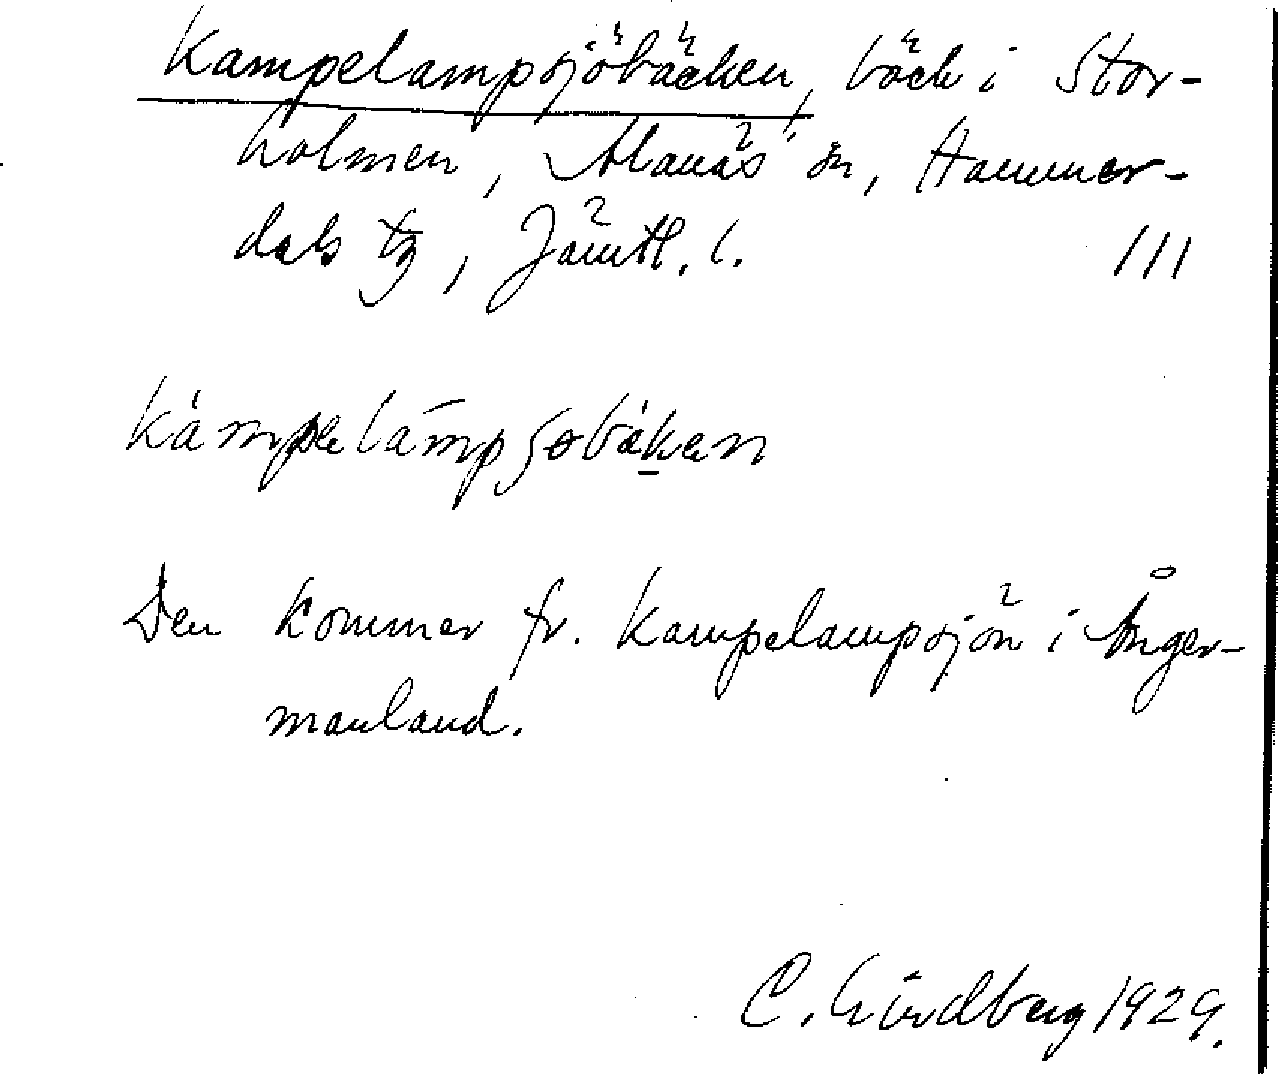 Kampelampsjöbäcken, bäck i Stor-
holmen, Alanäs sn, Hammer-
dals tg, Jämtl. l. III
kámpelāmpsobákan
Den kommer fr. Kampelampsjön i Ånger-
manland.
C. Lindberg 1929.